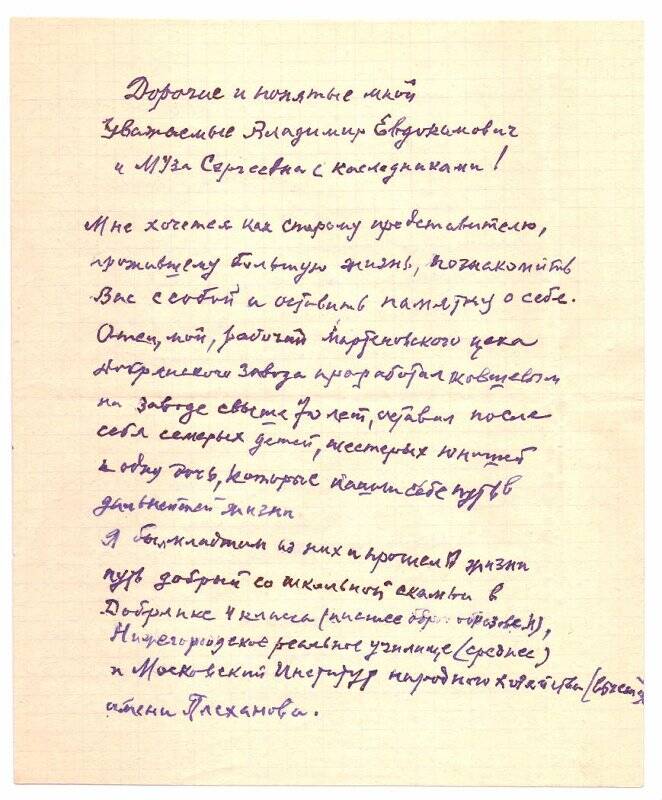 Дорогие и понятые мной
Уважаемые Владимир Евдокимович
и Муза Сергеевна с наследниками!
Мне хочется как старому представителю,
прожившему большую жизнь, познакомить
Вас с собой и оставить памятку о себе.
Отец мой, рабочий Мартеновского цеха
Добрянского завода проработал ковшевым
на заводе свыше 70 лет, оставил после
себя семерых детей, шестерых юношей
и одну дочь, которые нашли себе путь в
дальнейшей жизни
Я был младшим из них и прошел в жизни
путь добрый со школьной скамьи в
Добрянке 4 класса (низшее образован),
Нижегородское реальное училище (среднее)
и Московский Институт народного хозяйства (высшее)
имени Плеханова.